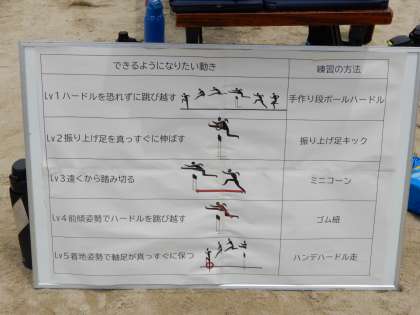 できるようになりたい動き 練習の方法
Lv１ハードルを恐れずに跳び越す 手作り段ボールハードル
Lv２振り上げ足を真っすぐに伸ばす 振り上げ足キック
Lv３遠くから踏み切る ミニコーン
Lv４前傾姿勢でハードルを跳び越す ゴム紐
Lv５着地姿勢で軸足が真っすぐに保つ ハンデハードル走